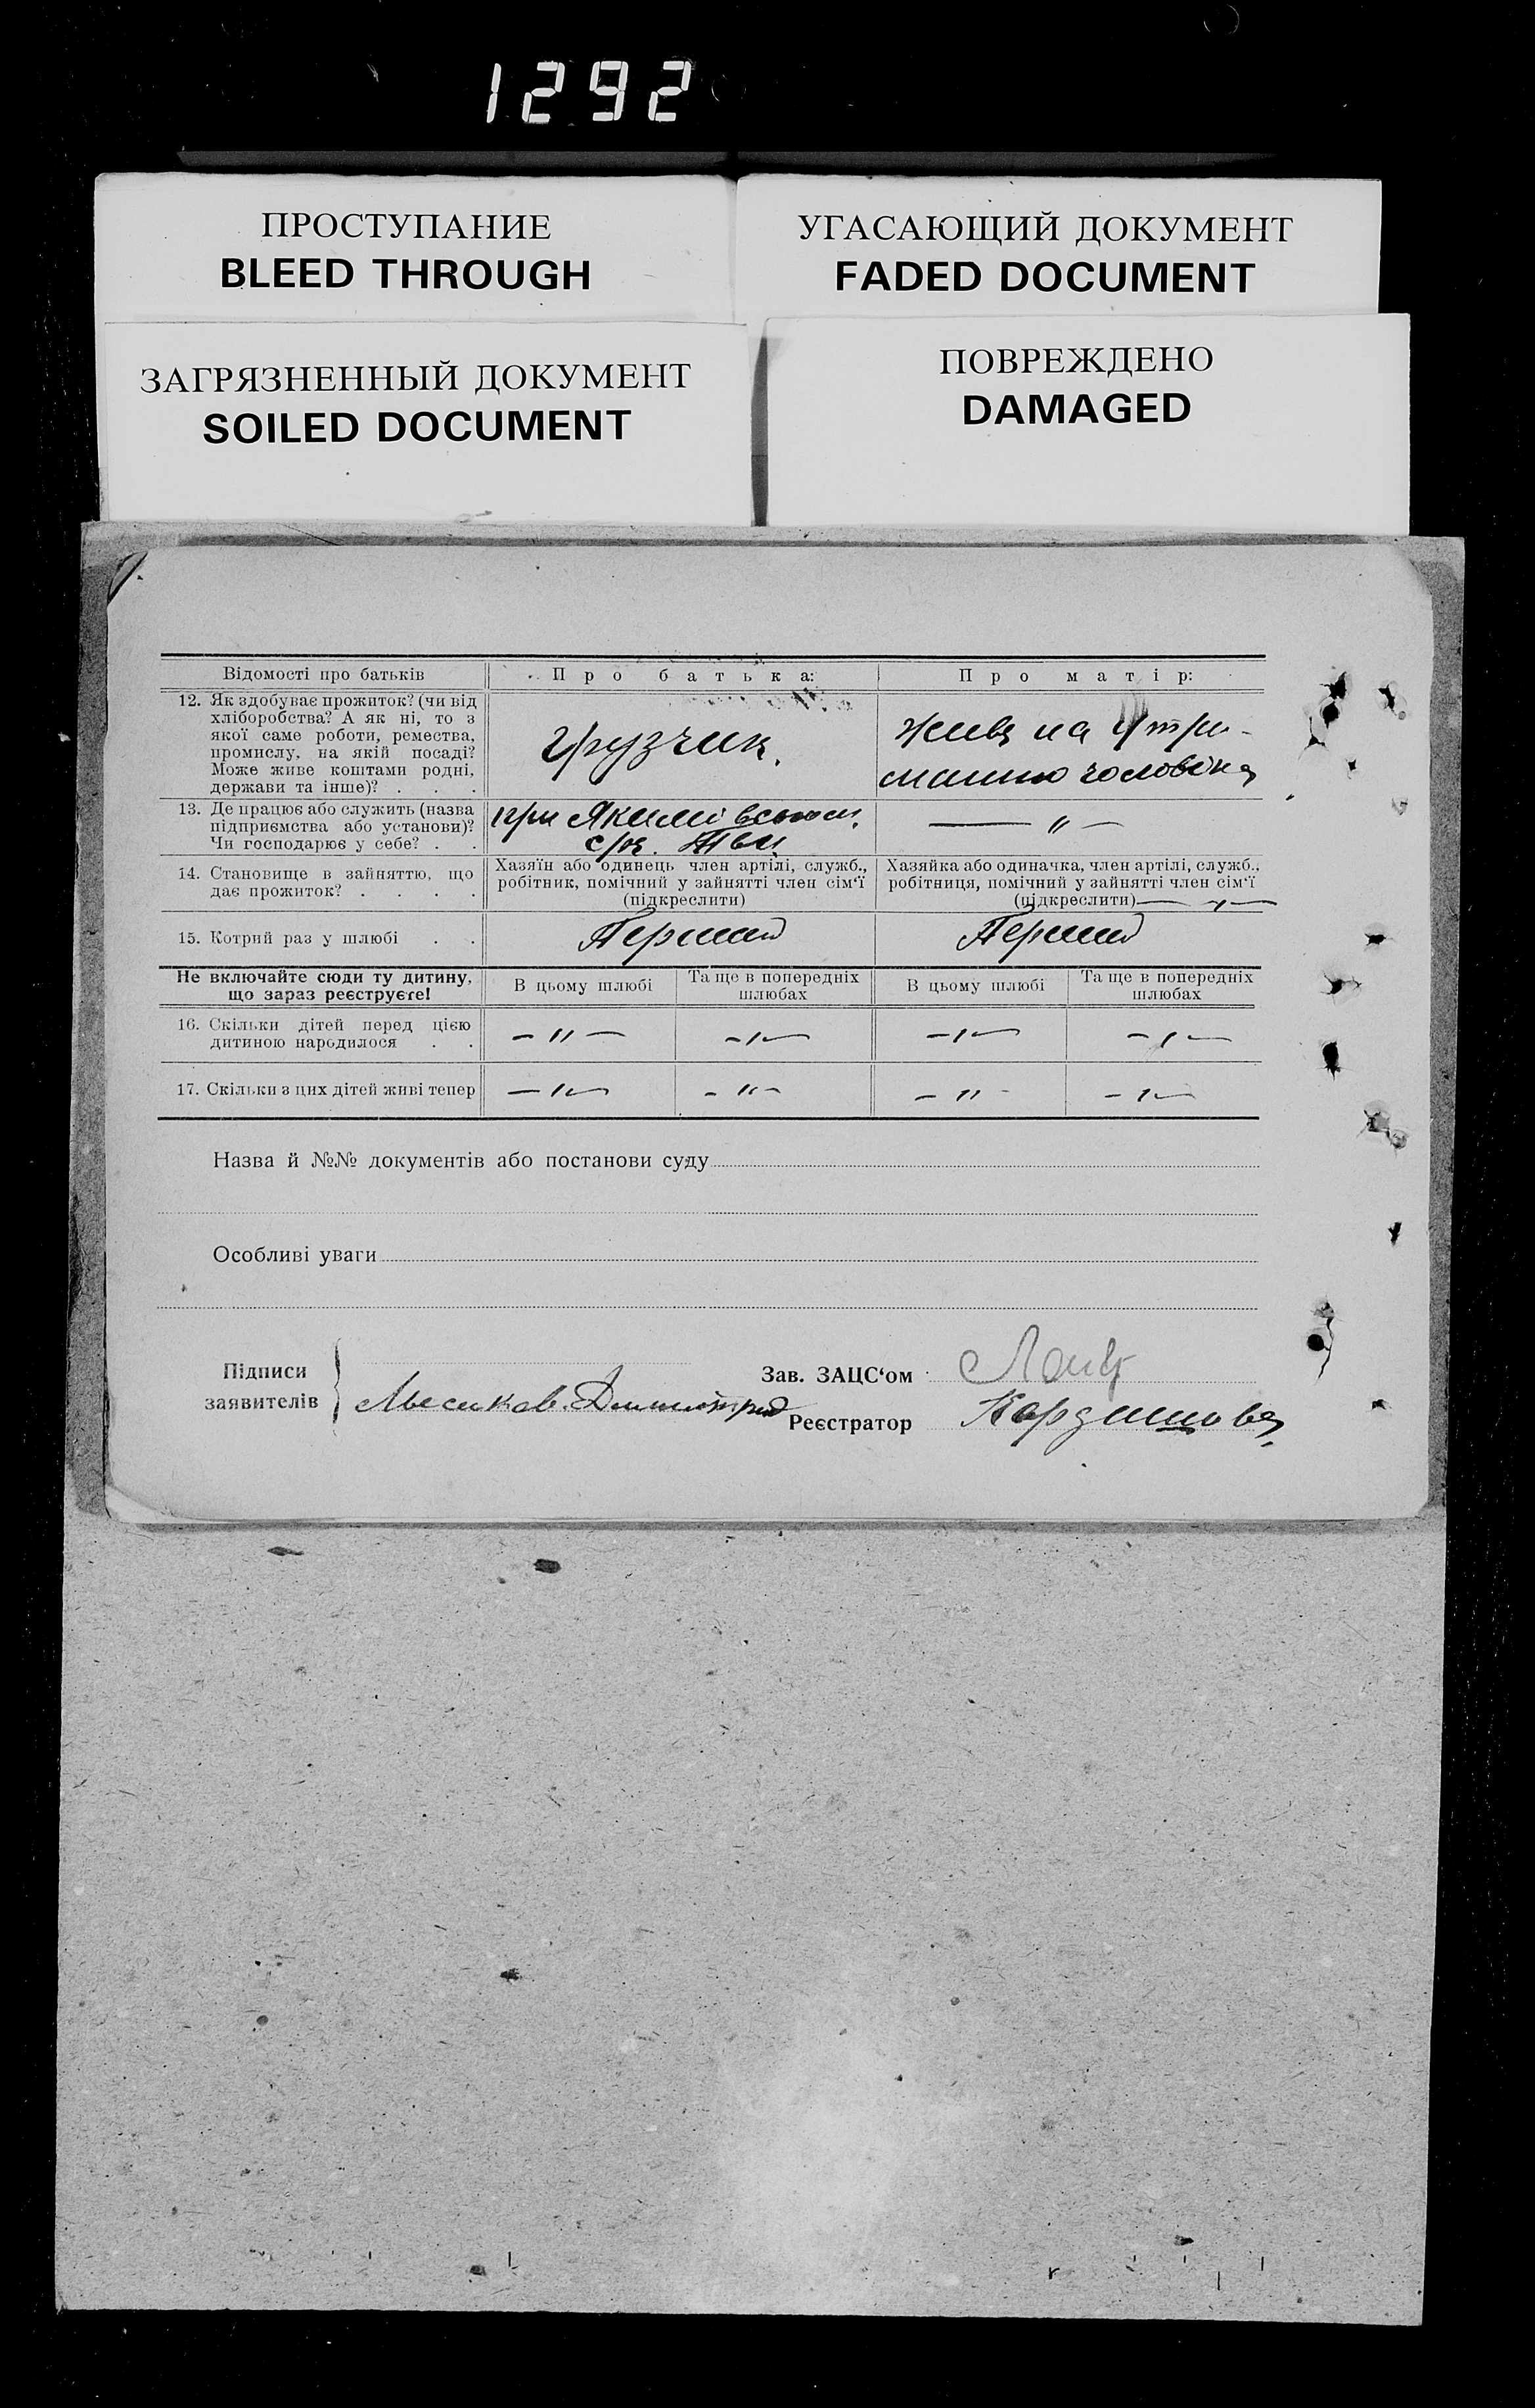 1292
ПРОСТУПАНИЕ
BLEED THROUGH
УГАСАЮЩИЙ ДОКУМЕНТ
FADED DOCUMENT
ЗАГРЯЗНЕННЫЙ ДОКУМЕНТ
SOILED DOCUMENT
ПОВРЕЖДЕНО
DAMAGED
Відомості про батьків
Про батька:
Про матір:
12. Як здобуває прожиток? (чи від
хліборобства? А як ні, то з
якої саме роботи, ремества,
промислу, на якій посаді?
Може живе коштами родні,
держави та інше)? . . .
грузчик.
живе на утри-
манню чоловіка
13. Де працює або служить (назва
підприємства або установи)?
Чи господарює у себе? . .
при Якимівськом
— " —
14. Становище в зайняттю, що
дає прожиток? . . . .
Хазяїн або одинець член артілі, служб.,
робітник, помічний у зайнятті член сім'ї
(підкреслити)
Хазяйка або одиначка, член артілі, служб.,
робітниця, помічний у зайнятті член сім'ї
(підкреслити) — " —
15. Котрий раз у шлюбі . .
Перший
Перший
Не включайте сюди ту дитину,
що зараз реєструєте!
В цьому шлюбі
Та ще в попередніх
шлюбах
В цьому шлюбі
Та ще в попередніх
шлюбах
16. Скільки дітей перед цією
дитиною народилося . .
— " —
— " —
— " —
— " —
17. Скільки з цих дітей живі тепер
— " —
— " —
— " —
— " —
Назва й №№ документів або постанови суду
Особливі уваги
Підписи
заявителів
Дмитрий
Зав. ЗАЦС'ом
Реєстратор